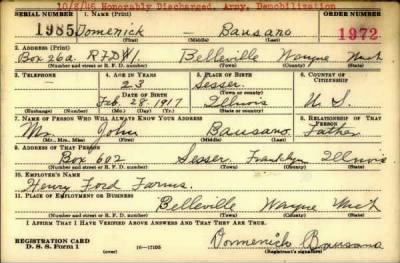 10/8/45 Honorably Discharged, Army, Demobilization
SERIAL NUMBER 1. NAME (Print) ORDER NUMBER
1985 Domenick — Bausano 1972
(First) (Middle) (Last)
2. ADDRESS (Print)
Box 26a. RFD#1 Belleville Wayne Mich
(Number and street or R. F. D. number) (Town) (County) (State)
3. TELEPHONE 4. AGE IN YEARS 5. PLACE OF BIRTH 6. COUNTRY OF CITIZENSHIP
— 23 Sesser
DATE OF BIRTH (Town or county)
Feb. 28. 1917 Illinois U S.
(Exchange) (Number) (Mo.) (Day) (Yr.) (State or country)
7. NAME OF PERSON WHO WILL ALWAYS KNOW YOUR ADDRESS 8. RELATIONSHIP OF THAT PERSON
Mr. John Bausano. Father
(Mr., Mrs., Miss) (First) (Middle) (Last)
9. ADDRESS OF THAT PERSON
Box 602 Sesser Franklyn Illinois
(Number and street or R. F. D. number) (Town) (County) (State)
10. EMPLOYER'S NAME
Henry Ford Farms.
11. PLACE OF EMPLOYMENT OR BUSINESS
Belleville Wayne Mich
(Number and street or R. F. D. number) (Town) (County) (State)
I AFFIRM THAT I HAVE VERIFIED ABOVE ANSWERS AND THAT THEY ARE TRUE.
REGISTRATION CARD
D. S. S. Form 1 16—17105 Domenick Bausano
(Registrant's signature)